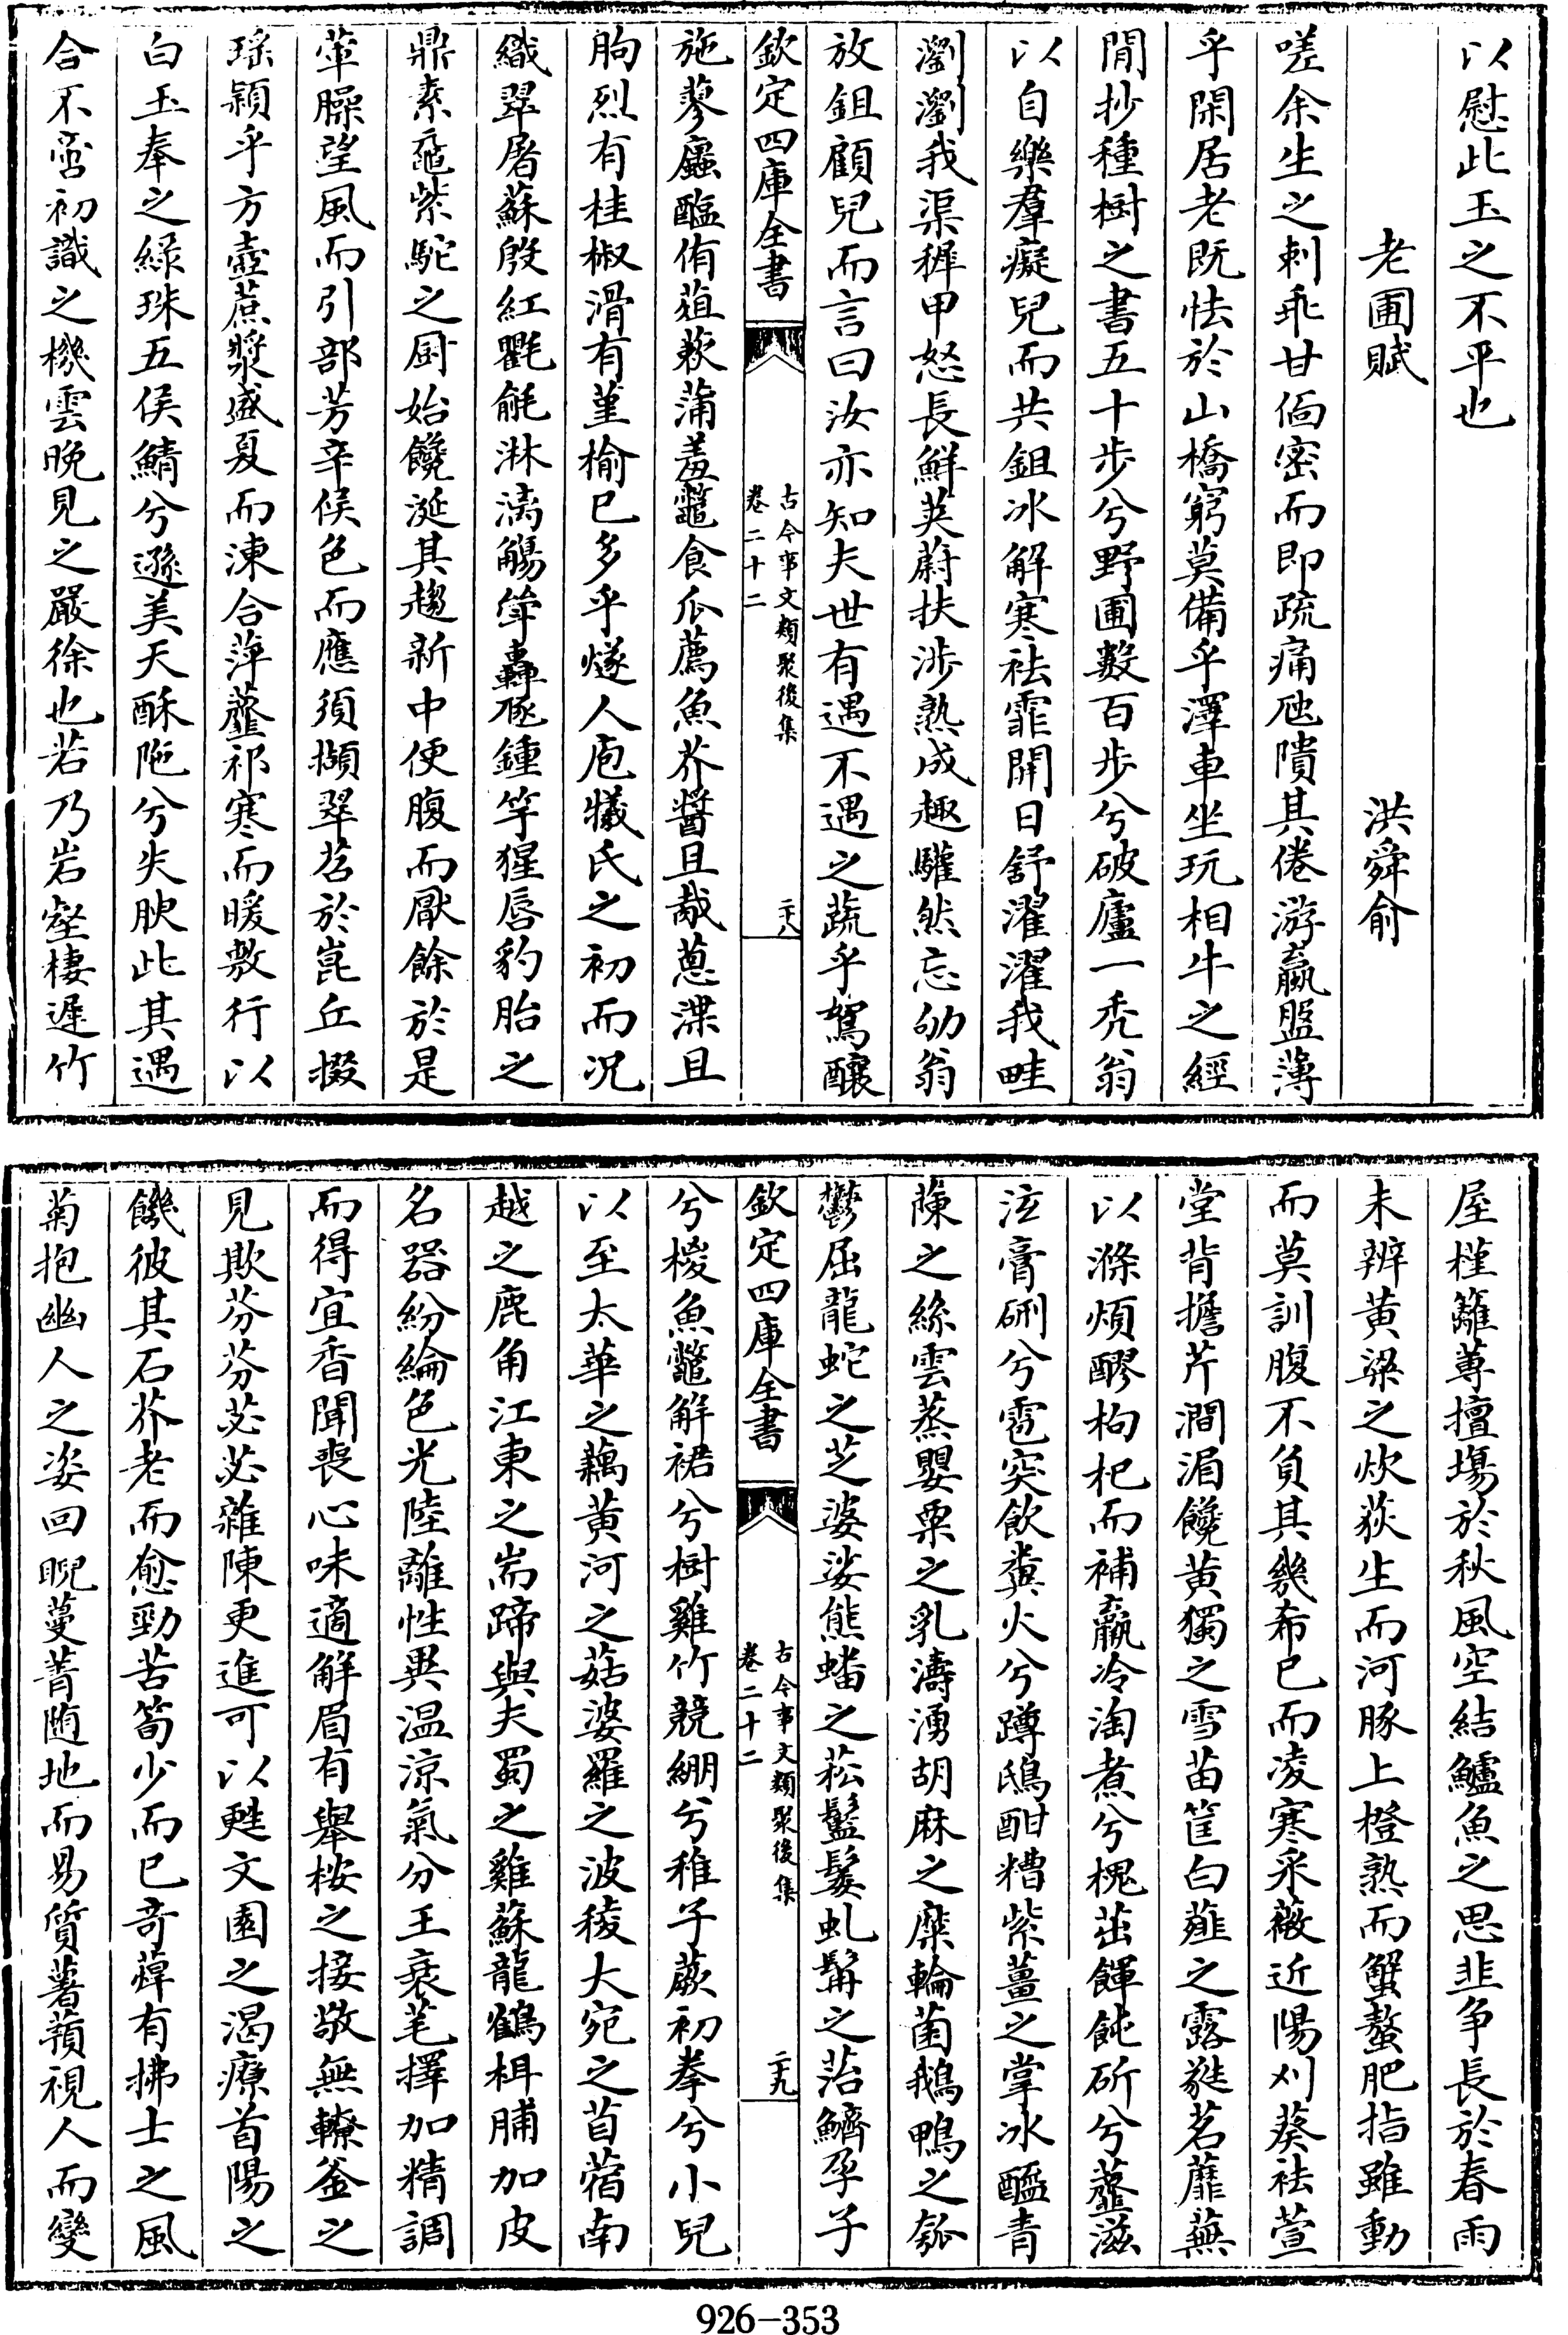 以慰此玉之不平也
老圃賦 洪舜俞
嗟余生之刺乖甘偭密而即疏痛虺隤其倦游羸盬薄
乎閑居老既怯於山橋窮莫備乎澤車坐玩相牛之經
閒抄種樹之書五十步兮野圃數百步兮破廬一禿翁
以自樂羣癡兒而共鉏冰解寒祛霏開日舒濯濯我畦
瀏瀏我渠稺甲怒長鮮荚蔚扶涉熟成趣驩然忘劬翁
放鉏顧兒而言曰汝亦知夫世有遇不遇之蔬乎駕釀
欽定四庫全書
古今事文類聚後集
卷二十二
二十八
施蓼䗩醢侑葅蔌蒲羞鼈食瓜薦魚芥醤且胾蔥渫且
朐烈有桂椒滑有堇榆已多乎燧人庖犧氏之初而况
織翠屠蘇殷紅氍毹淋漓觴斝轟豗鍾竽猩唇豹胎之
鼎素黿紫駝之厨始饞涎其趨新中便腹而厭餘於是
葷臊望風而引部芳辛候色而應須擷翠苕於崑丘掇
瑶穎乎方壺蔗漿盛夏而凍合萍虀祁寒而暖敷行以
白玉奉之綠珠五侯鯖兮遜美天酥陁兮失腴此其遇
合不啻初識之機雲晚見之嚴徐也若乃岩壑棲遲竹
屋槿籬蓴擅場於秋風空結鱸魚之思韭爭長於春雨
未辨黄粱之炊荻生而河豚上橙熟而蟹螯肥指雖動
而莫訓腹不負其幾希已而凌寒采薇近陽刈葵祛萱
堂背擔芹澗湄饞黄獨之雪苗筐白薤之露蕤茗蘼蕪
以滌煩醪枸杞而補羸冷淘煮兮槐茁餫飩斫兮虀滋
泣膏硎兮雹突飲糞火兮蹲鴟酣糟紫薑之掌冰醯青
蔯之絲雲蒸嬰粟之乳濤湧胡麻之糜輪菌鵝鴨之瓠
鬱屈龍蛇之芝婆娑熊蟠之菘鬈鬘虬髯之萡鱭孕子
欽定四庫全書
古今事文類聚後集
卷二十二
二十九
兮椶魚鼈解裙兮樹雞竹競綳兮稚子蕨初拳兮小兒
以至太華之藕黄河之菇婆羅之波稜大宛之苜蓿南
越之鹿角江東之耑蹄與夫蜀之雞蘇龍鶴栮脯加皮
名器紛綸色光陸離性異温涼氣分王衰芼擇加精調
而得宜香聞喪心味適解眉有舉桉之接敬無轑釜之
見欺芬芬苾苾雜陳更進可以甦文園之渴療首陽之
饑彼其石芥老而愈勁苦筍少而已奇蔊有拂士之風
菊抱幽人之姿回睨蔓菁随地而易質薯蕷視人而變
926-353